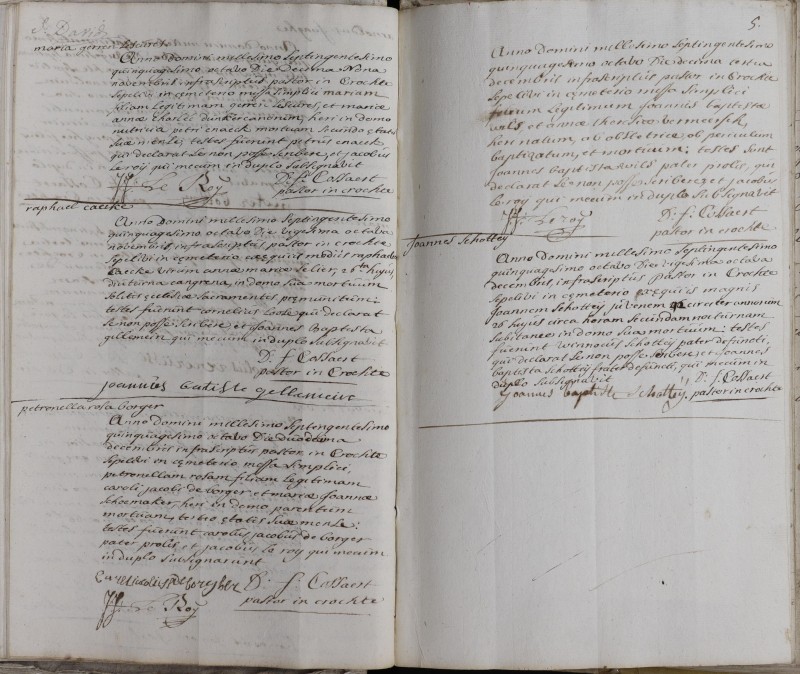 David
maria
Anno Domini millesimo Septingentesimo
quinquagesimo octavo Die Decima Nona
novembris infrascriptus pastor in Crochte
Sepelivi in cemeterio missa simplici mariam
filiam Legitimam et mariæ
annæ dunkercanorum, heri in domo
nutricis petri enaeck mortuam Secundo
testes fuerunt petrus enaeck
qui declarat se non posse scribere, et jacobus
le roy qui mecum in duplo subsignavit
Le Roy D. f. Cossaert
pastor in crochte
raphael caecke
Anno Domini millesimo Septingentesimo
quinquagesimo octavo Die vigesima octava
novembris infrascriptus pastor in crochte
Sepelivi in cemeterio exequiis mediis raphaelem
Caecke virum annæ mariæ 26ta hujus
diuturna cangrena, in domo sua mortuum
solitis ecclesiæ Sacramentis præmunitum:
testes fuerunt cornelius qui declarat
se non posse scribere et joannes Baptista
qui mecum in duplo subsignavit
D. f Cossaert
pastor in Crochte
joannus batiste
petronella rosa borger
Anno Domini millesimo Septingentesimo
quinquagesimo octavo Die duodecima
decembris infrascriptus pastor in Crochte
Sepelivi in cemeterio missa simplici,
petronellam rosam filiam Legitimam
caroli jacobi de borger et mariæ joannæ
Schoemaker, heri in domo parentum
mortuam, tertio ætatis suæ mense:
testes fuerunt carolus jacobus de borger
pater prolis et jacobus le roy qui mecum
in duplo subsignarunt
D. f. Cossaert
Le Roy pastor in crochte
5.
Anno Domini millesimo Septingentesimo
quinquagesimo octavo Die decima
decembris infrascriptus pastor in Crochte
Sepelivi in cemeterio missa simplici
filium Legitimum joannis baptistæ
vals, et annæ theresiæ vermeersch,
heri natum, ab obstetrice ob periculum
baptizatum, et mortuum: testes sunt
joannes baptista vals pater prolis, qui
declarat se non posse scribere et jacobus
le roy qui mecum in duplo subsignavit
le roy D. f. Cossaert
pastor in crochte
joannes Schottey
Anno Domini millesimo Septingentesimo
quinquagesimo octavo Die vigesima octava
decembris, infrascriptus pastor in Crochte
sepelivi in cemeterio exequiis magnis
joannem Schottey juvenem circiter annorum
26 hujus circa horam secundam nocturnam
subitanee in domo sua mortuum: testes
fuerunt winnocus Schottey pater defuncti,
qui declarat se non posse scribere, et joannes
baptista Schottey frater defuncti, qui mecum in
duplo subsignavit D. f. Cossaert
joannes baptiste Schottey pastor in crochte